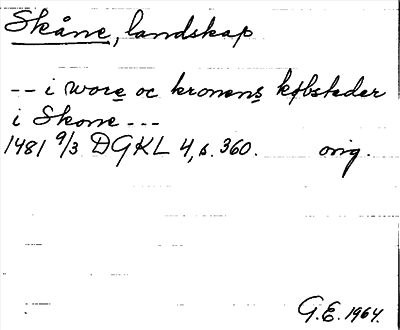 Skåne, landskap
-- i wore oc kronens købsteder
i Skone ---
1481 9/3 DGKL 4, s. 360. orig.
G.E. 1964.